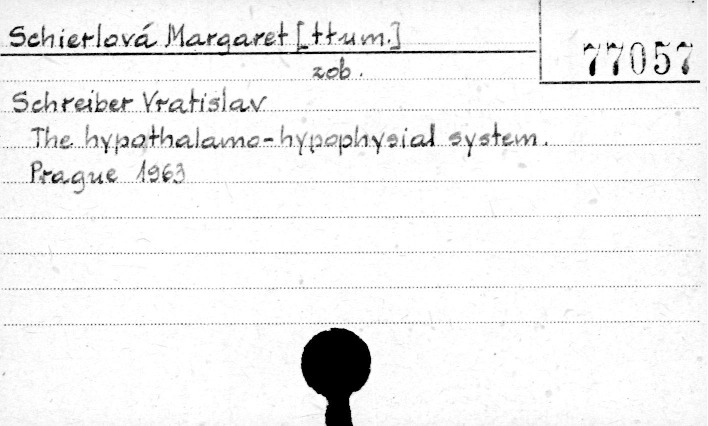 Schierlová Margaret [tłum.]
77057
zob.
Schreiber Vratislav
The hypothalamo-hypophysial system.
Prague 1963